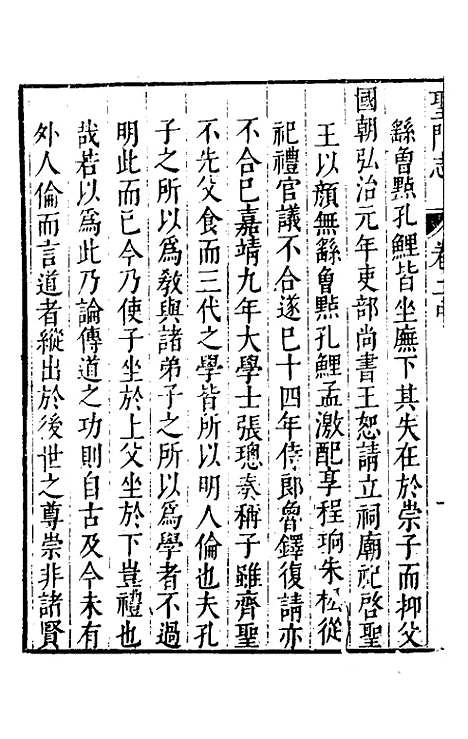 聖門志 卷二中
繇魯點孔鯉皆坐廡下其失在於崇子而抑父
國朝弘治元年吏部尚書王恕請立祠廟祀啓聖
王以顏無繇魯點孔鯉孟激配享程珦朱松從
祀禮官議不合遂巳十四年侍郎魯鐸復請亦
不合巳嘉靖九年大學士張璁奏稱子雖齊聖
不先父食而三代之學皆所以明人倫也夫孔
子之所以爲敎與諸弟子之所以爲學者不過
明此而已今乃使子坐於上父坐於下豈禮也
哉若以爲此乃論傳道之功則自古及今未有
外人倫而言道者縱出於後世之尊崇非諸賢